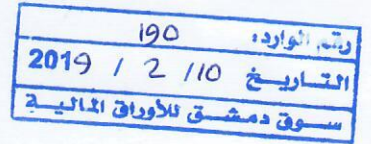 رقم الوارد: 190
التاريخ 10/ 2 / 2019
سوق دمشق للأوراق المالية